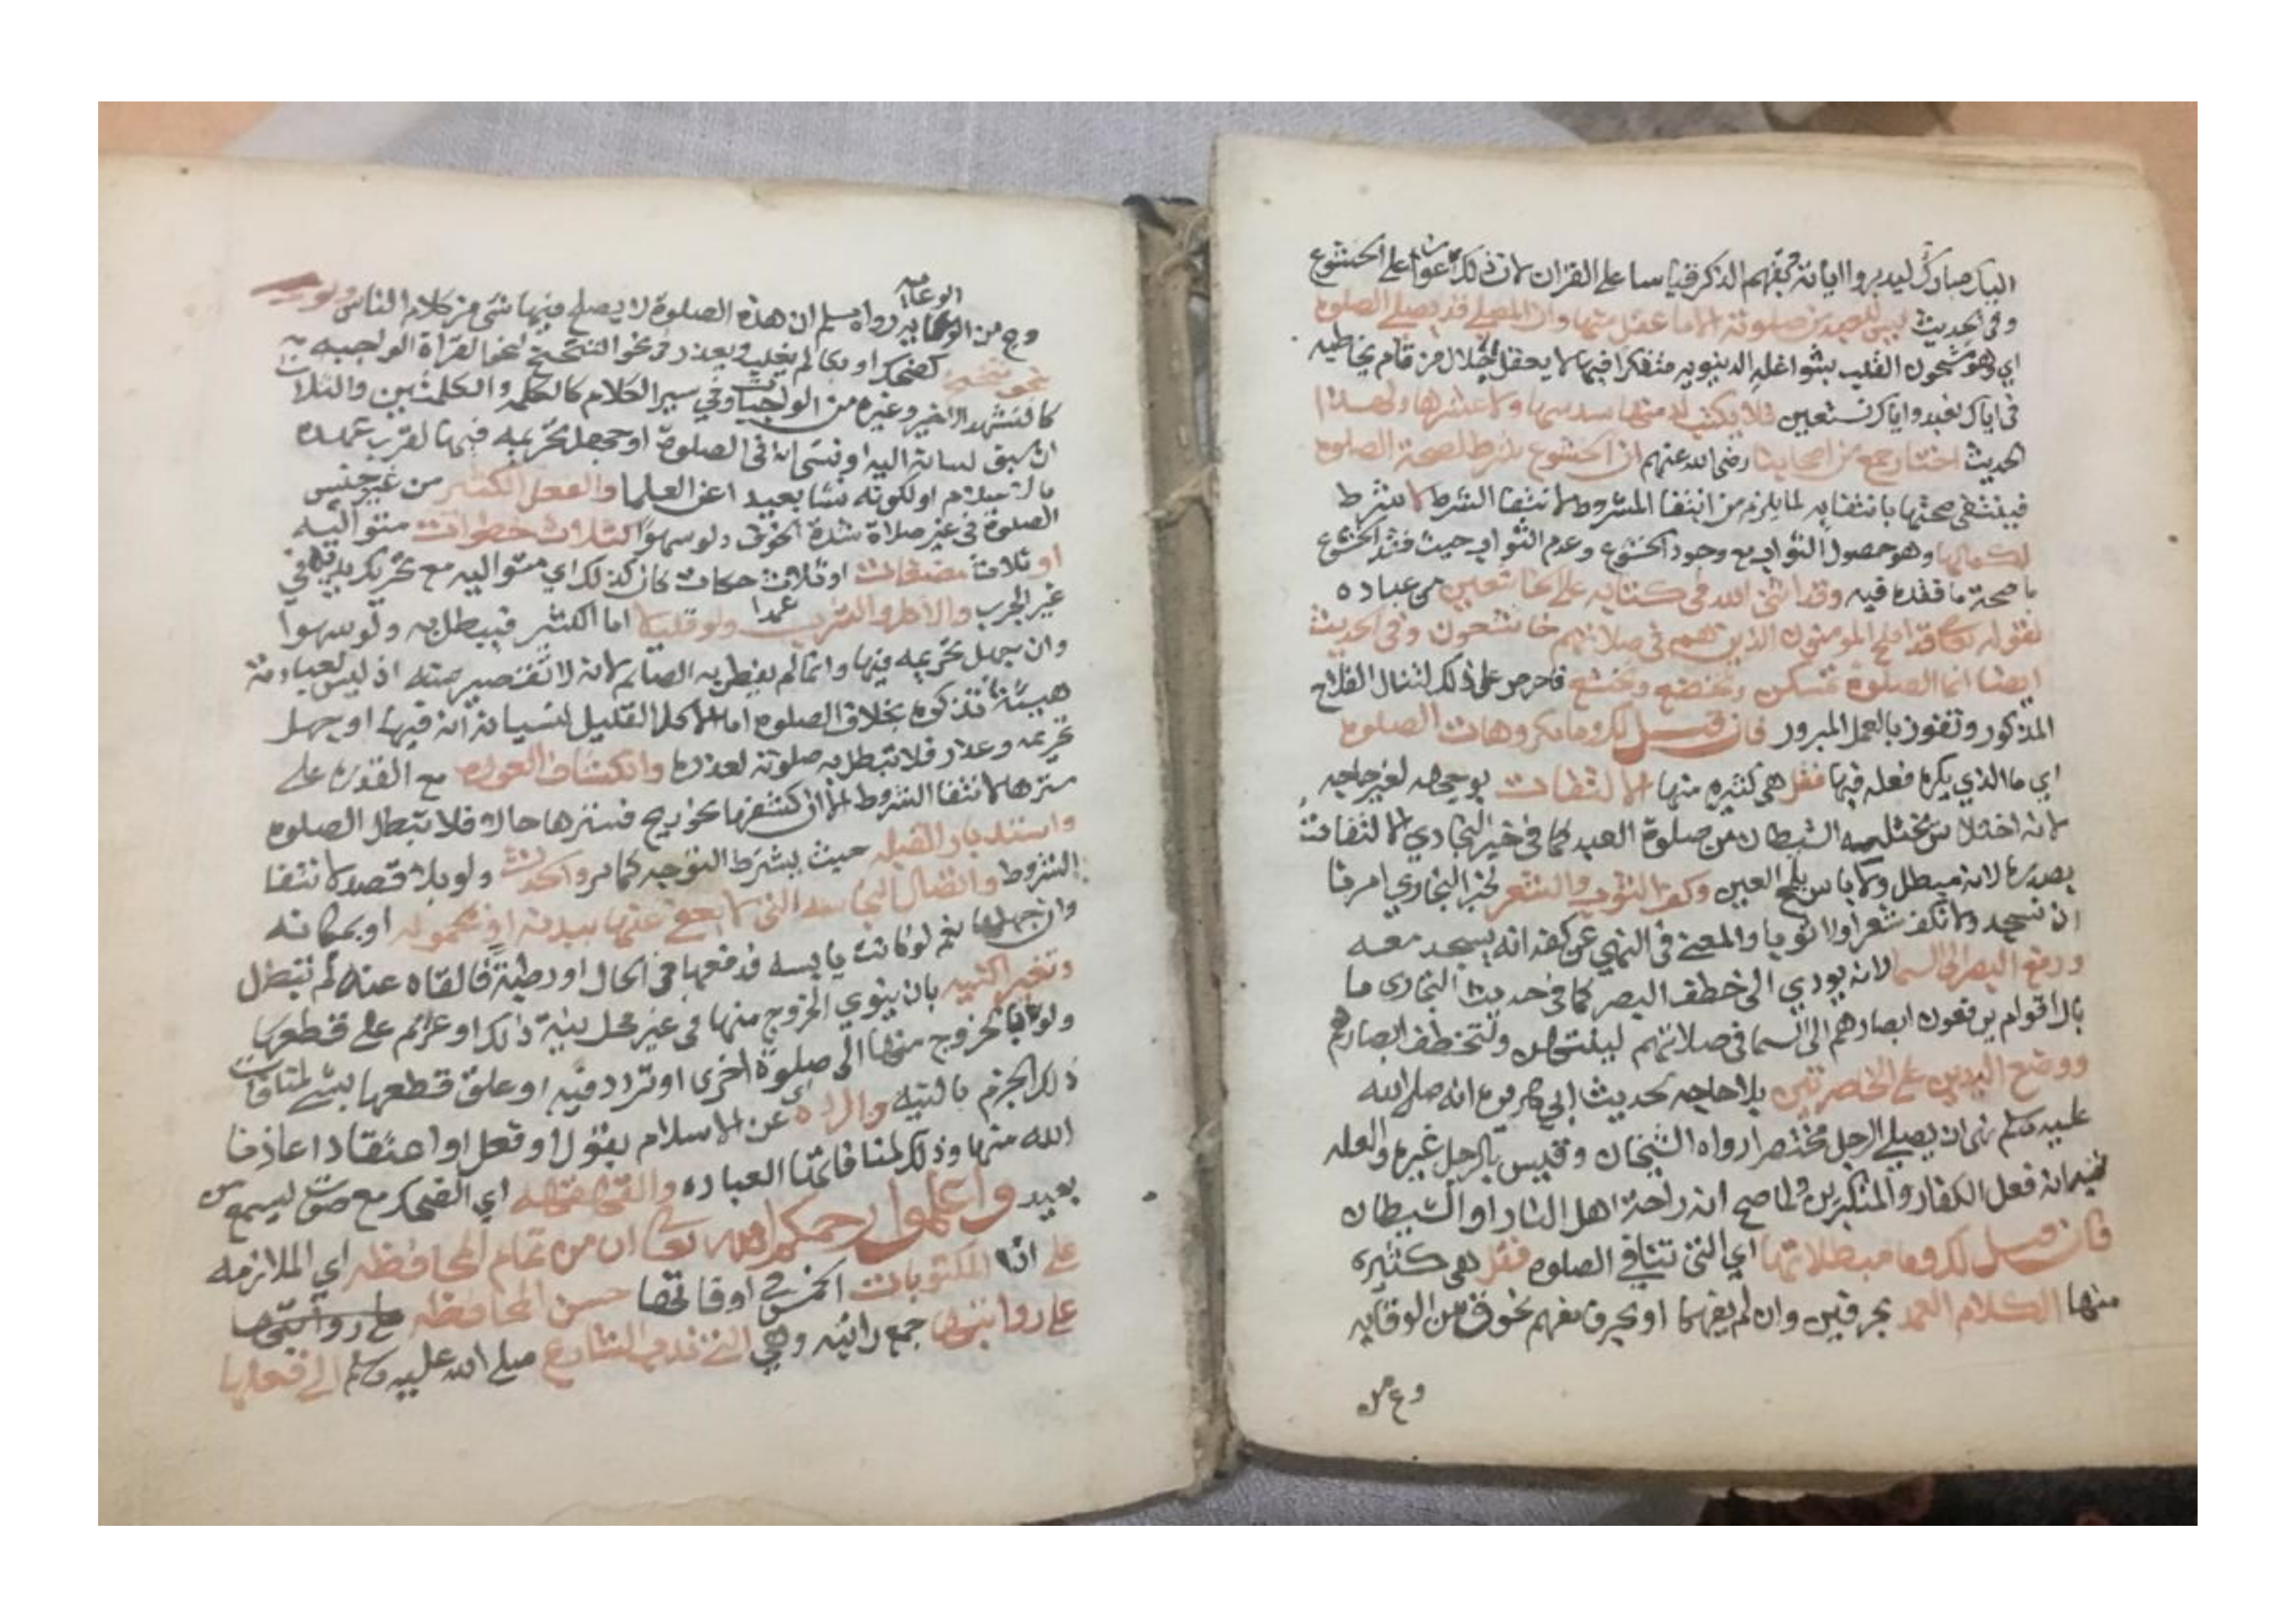 اليك مبارك ليدبروا اياته وبفهم الذكر قياسا على القران لان ذلك اعون على الخشوع
وفي الحديث ليس للعبد من صلوته الا ما عقل منها وان المصلي قد يصلي الصلوة
اي وهو مشحون القلب بشواغله الدنيويه متفكرا فيها لا يعقل جلال من قام يخاطبه
في اياك نعبد واياك نستعين فلا يكتب له منها سدسها ولا عشرها ولهذا
الحديث اختار جمع من اصحابنا رضي الله عنهم ان الخشوع شرط لصحة الصلوة
فينتفي صحتها بانتفايه لما يلزم من انتفا المشروط لانتفا الشرط لا شرط
لكمالها وهو حصول الثواب مع وجود الخشوع وعدم الثواب حيث فقد الخشوع
ما صحة ما فقده فيه وقد اثنى الله في كتابه على الخاشعين من عباده
بقوله تعا قد افلح المومنون الذين هم في صلاتهم خاشعون وفي الحديث
ايضا انما الصلوة تمسكن وتخضع وتخشع فاحرص على ذلك لتنال الفلاح
المذكور وتفوز بالعمل المبرور فان قيل لك وما مكروهات الصلوة
اي ما الذي يكره فعله فيها فقل هي كثيره منها الالتفات بوجهه لغير حاجه
لانه اختلاس يختلسه الشيطان من صلوة العبد كما في خبر البخاري لا التفاته
بصدره لانه مبطل ولا باس بلمح العين وكف الثوب والشعر لخبر البخاري امرنا
ان نسجد ولا نكف شعرا ولا ثوبا والمعنى في النهي عن كفه انه يسجد معه
ورفع البصر الى السما لانه يودي الى خطف البصر كما في حديث البخاري ما
بال اقوام يرفعون ابصارهم الى السما في صلاتهم لينتهن ولتخطفن ابصارهم
ووضع اليدين على الخاصرتين بلا حاجه لحديث ابي هريرة انه صلى الله
عليه وسلم نهى ان يصلي الرجل مختصرا رواه الشيخان وقيس بالرجل غيره والعله
فيه انه فعل الكفار والمتكبرين ولما صح انه راحة اهل النار او الشيطان
فان قيل لك وما مبطلاتها اي التي تنافي الصلوه فقل هي كثيره
منها الكلام العمد بحرفين وان لم يفهما او بحرف مفهم نحو ق من الوقايه
وع من
الوعاية
وع من الوعايه رواه مسلم ان هذه الصلوة لا يصلح فيها شي من كلام الناس ولو
بنحو تنحنح كضحك او بكا لم يغلب ويعذر في نحو التنحنح لنحو القراة الواجبه
كالتشهد الاخير وغيره من الواجبات وفي يسير الكلام كالكلمه والكلمتين والثلاث
ان سبق لسانه اليه او نسي انه في الصلوة او جهل تحريمه فيها لقرب عهده
بالاسلام او لكونه نشا بعيدا عن العلما والفعل الكثير من غير جنس
الصلوة في غير صلاة شدة الخوف ولو سهوا كثلاث خطوات متواليه
او ثلاث مضغات او ثلاث حكات كان كذلك اي متواليه مع تحريك يديه في
غير الجرب والاكل والشرب عمدا ولو قليلا اما الكثير فيبطل به ولو سهوا
وان جهل تحريمه فيها وانما لم يفطر به الصايم لانه لا تقصير منه اذ ليس لعبادته
هيئة تذكره بخلاف الصلوه اما الاكل القليل لنسيانه انه فيها او جهل
تحريمه وعذر فلا تبطل به صلوته لعذره وانكشاف العوره مع القدره على
سترها لانتفا الشروط الا ان كشفها نحو ريح فسترها حالا فلا تبطل الصلوه
واستدبار القبله حيث يشترط التوجه كما مر والحدث ولو بلا قصد لانتفا
الشروط واتصال النجاسه التي لا يعفى عنها ببدنه او محموله او بمكانه
وان جهلها نعم لو كانت يابسه فدفعها في الحال او رطبة فالقاه عنه لم تبطل
وتغير النيه بان ينوي الخروج منها في غير محل نية ذلك او عزم على قطعها
ولو بالخروج منها الى صلوة اخرى او تردد فيه او علق قطعها بشي لمنافات
ذلك الجزم بالنيه والرده عن الاسلام بقول او فعل او اعتقاد اعاذنا
الله منها وذلك لمنافاتها العباده والقهقهه اي الضحك مع صوت ليسمع من
بعيد واعلموا رحمكم الله تعا ان من تمام المحافظه اي الملازمه
على اداء المكتوبات الخمس في اوقاتها حسن المحافظه على رواتبها
على رواتبها جمع راتبه وهي التي ندب الشارع صلى الله عليه وسلم الى فعلها